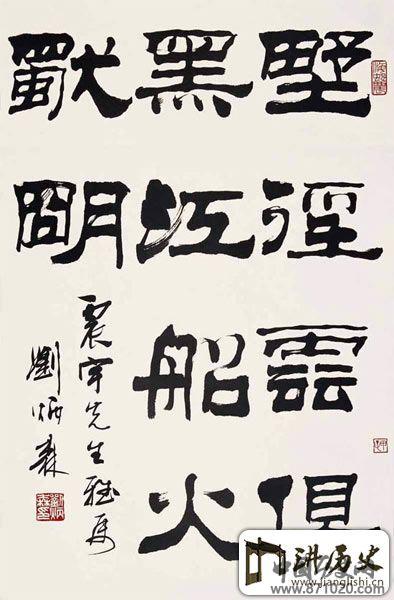 墅徑雲俱
黑江船火
獨明
震宇先生雅属
劉炳森
讲历史
www.jianglishi.cn
www.871020.com